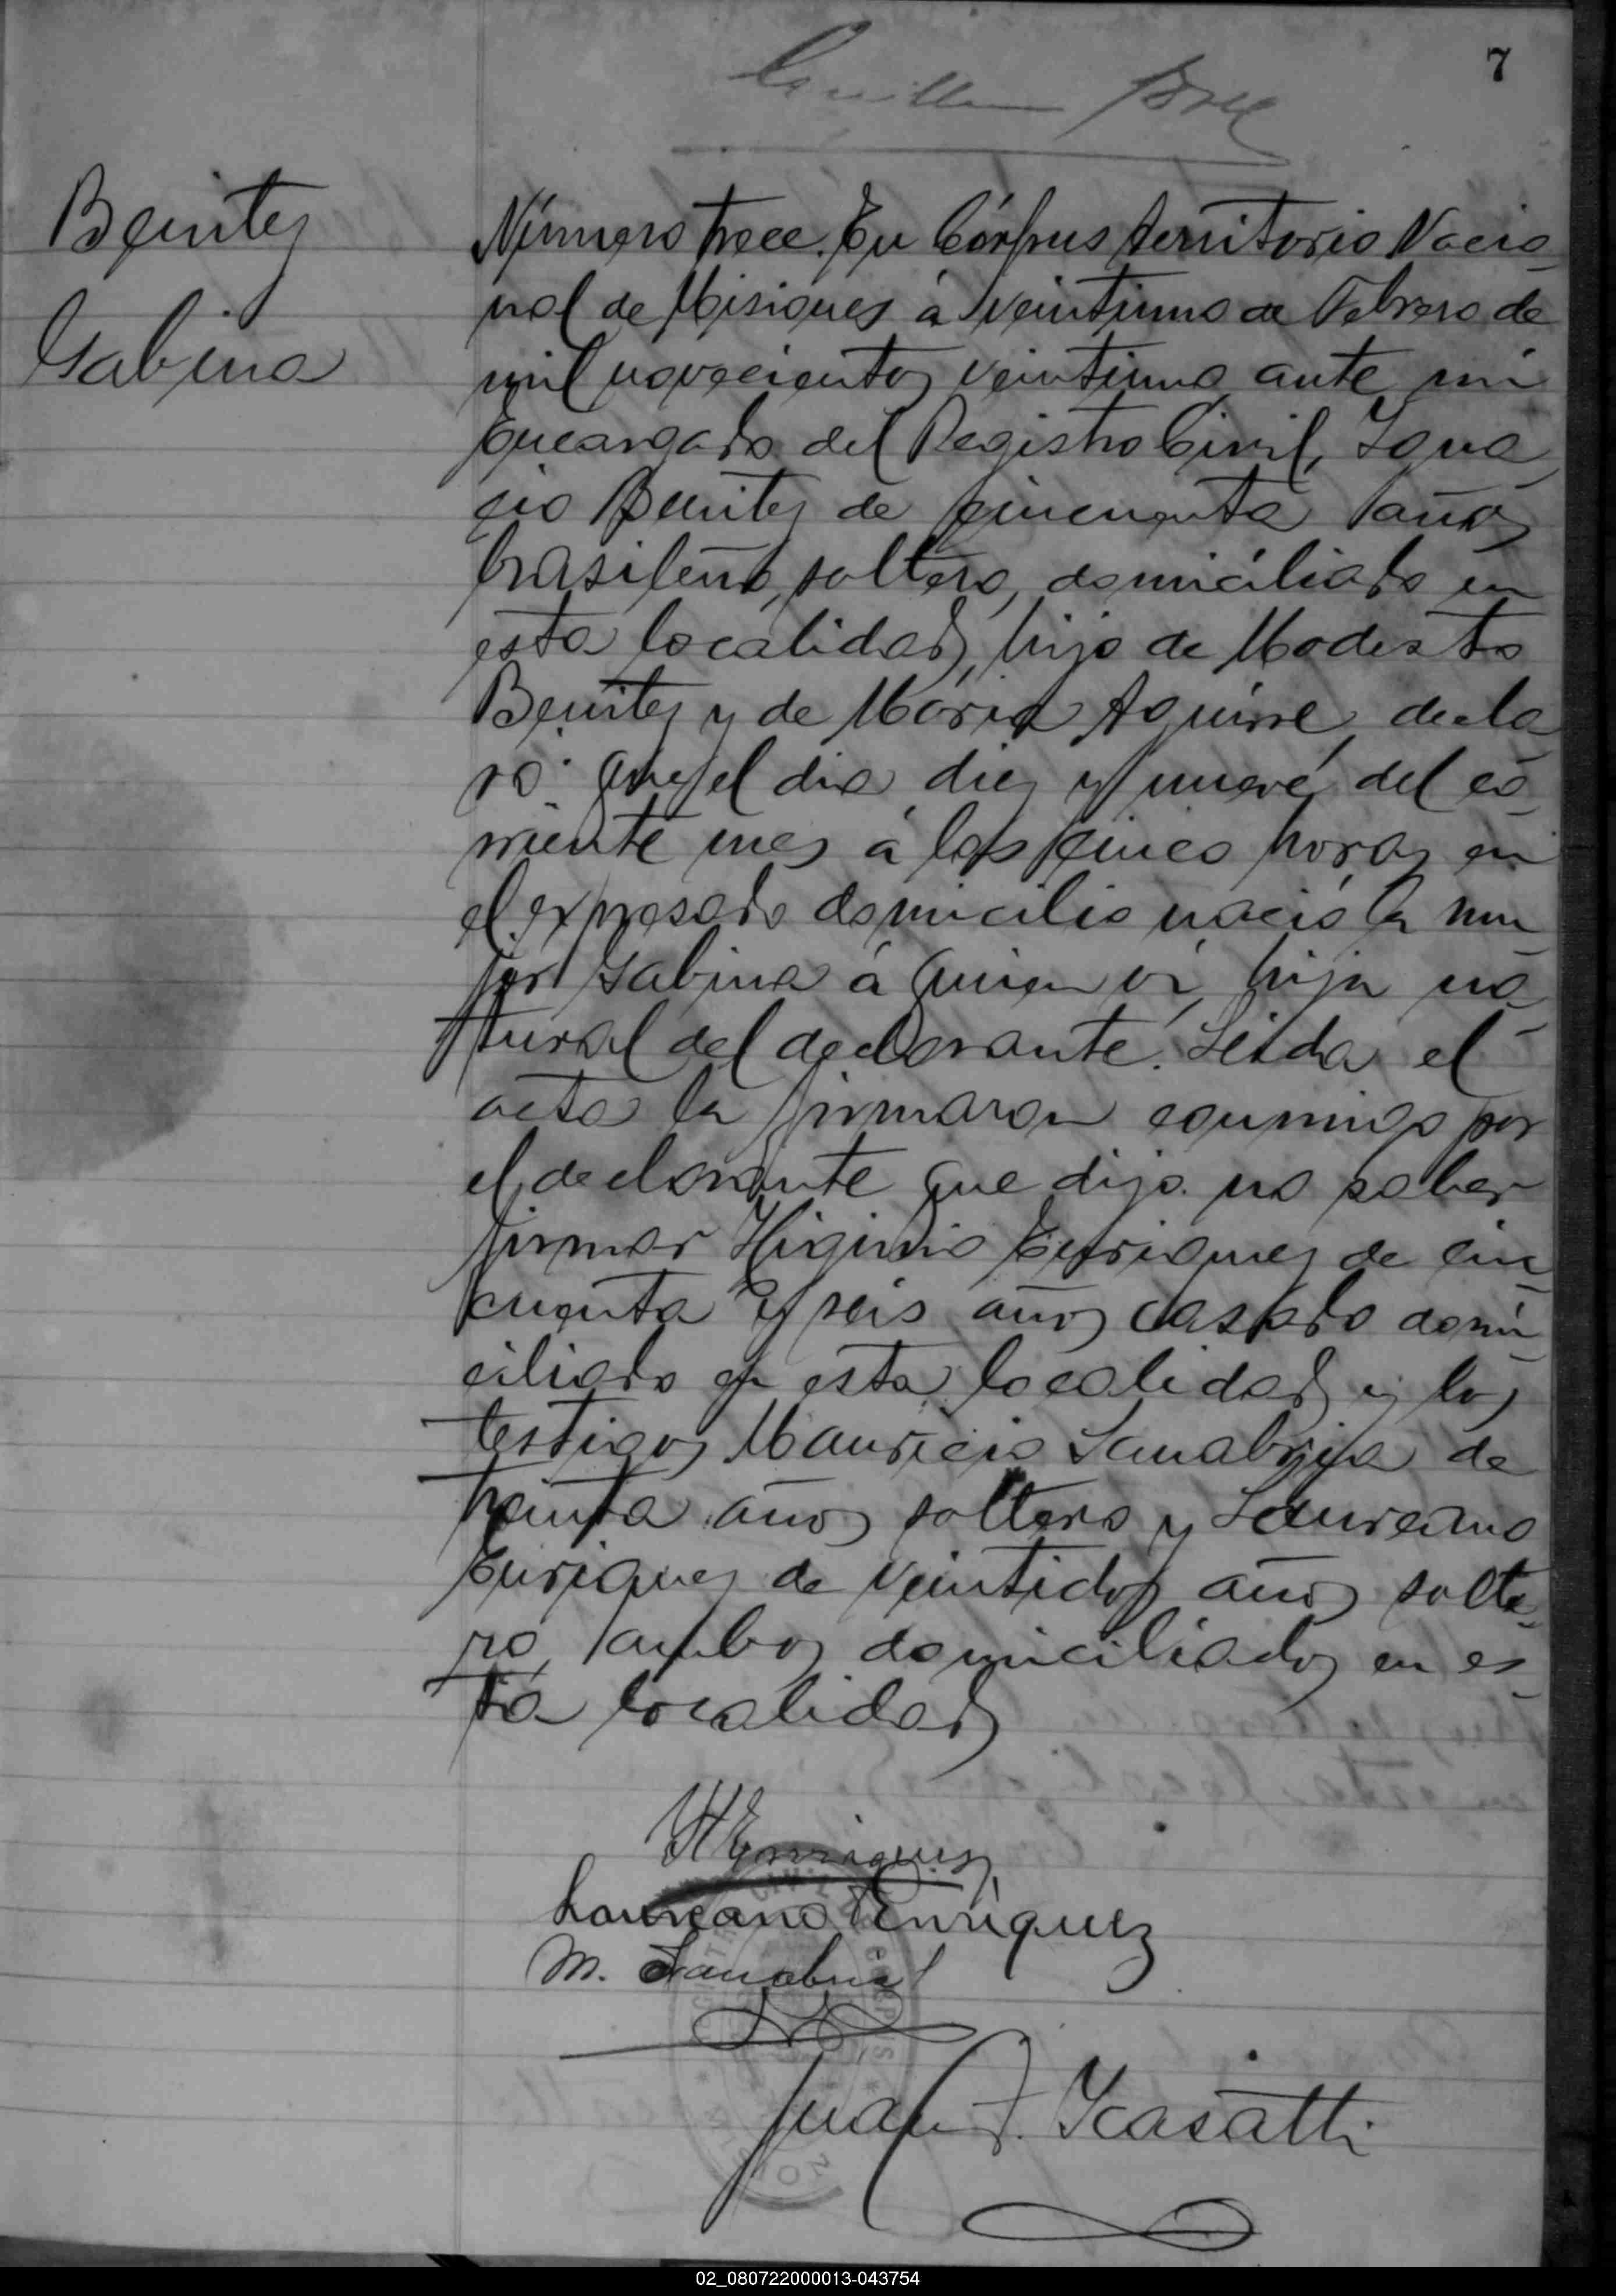 7
Benitez
Gabina
Número trece. En Córpus territorio Nacio
nal de Misiones á veintiuno de Febrero de
mil novecientos veintiuno, ante mi
Encargado del Registro Civil, Igna
cio Benitez de cincuenta años
brasileño, soltero, domiciliado en
esta localidad, hijo de Modesto
Benitez y de Maria Aguirre, decla
ró: Que el dia diez y nueve del co
rriente mes á las cinco horas en
el expresado domicilio nació la mu
jer Gabina á quien vi, hija na
tural del declarante. Leida el
acta la firmaron conmigo por
el declarante que dijo no saber
firmar Higinio Enriquez de cin
cuenta y seis años casado domi
ciliado en esta localidad y los
testigos Mauricio Sanabria de
treinta años soltero y Laureano
Enriquez de veintidos años solte
ro, ambos domiciliados en es
ta localidad
H Enriquez
Laureano Enriquez
M. Sanabria
Juan F. Icasatti
02_080722000013-043754